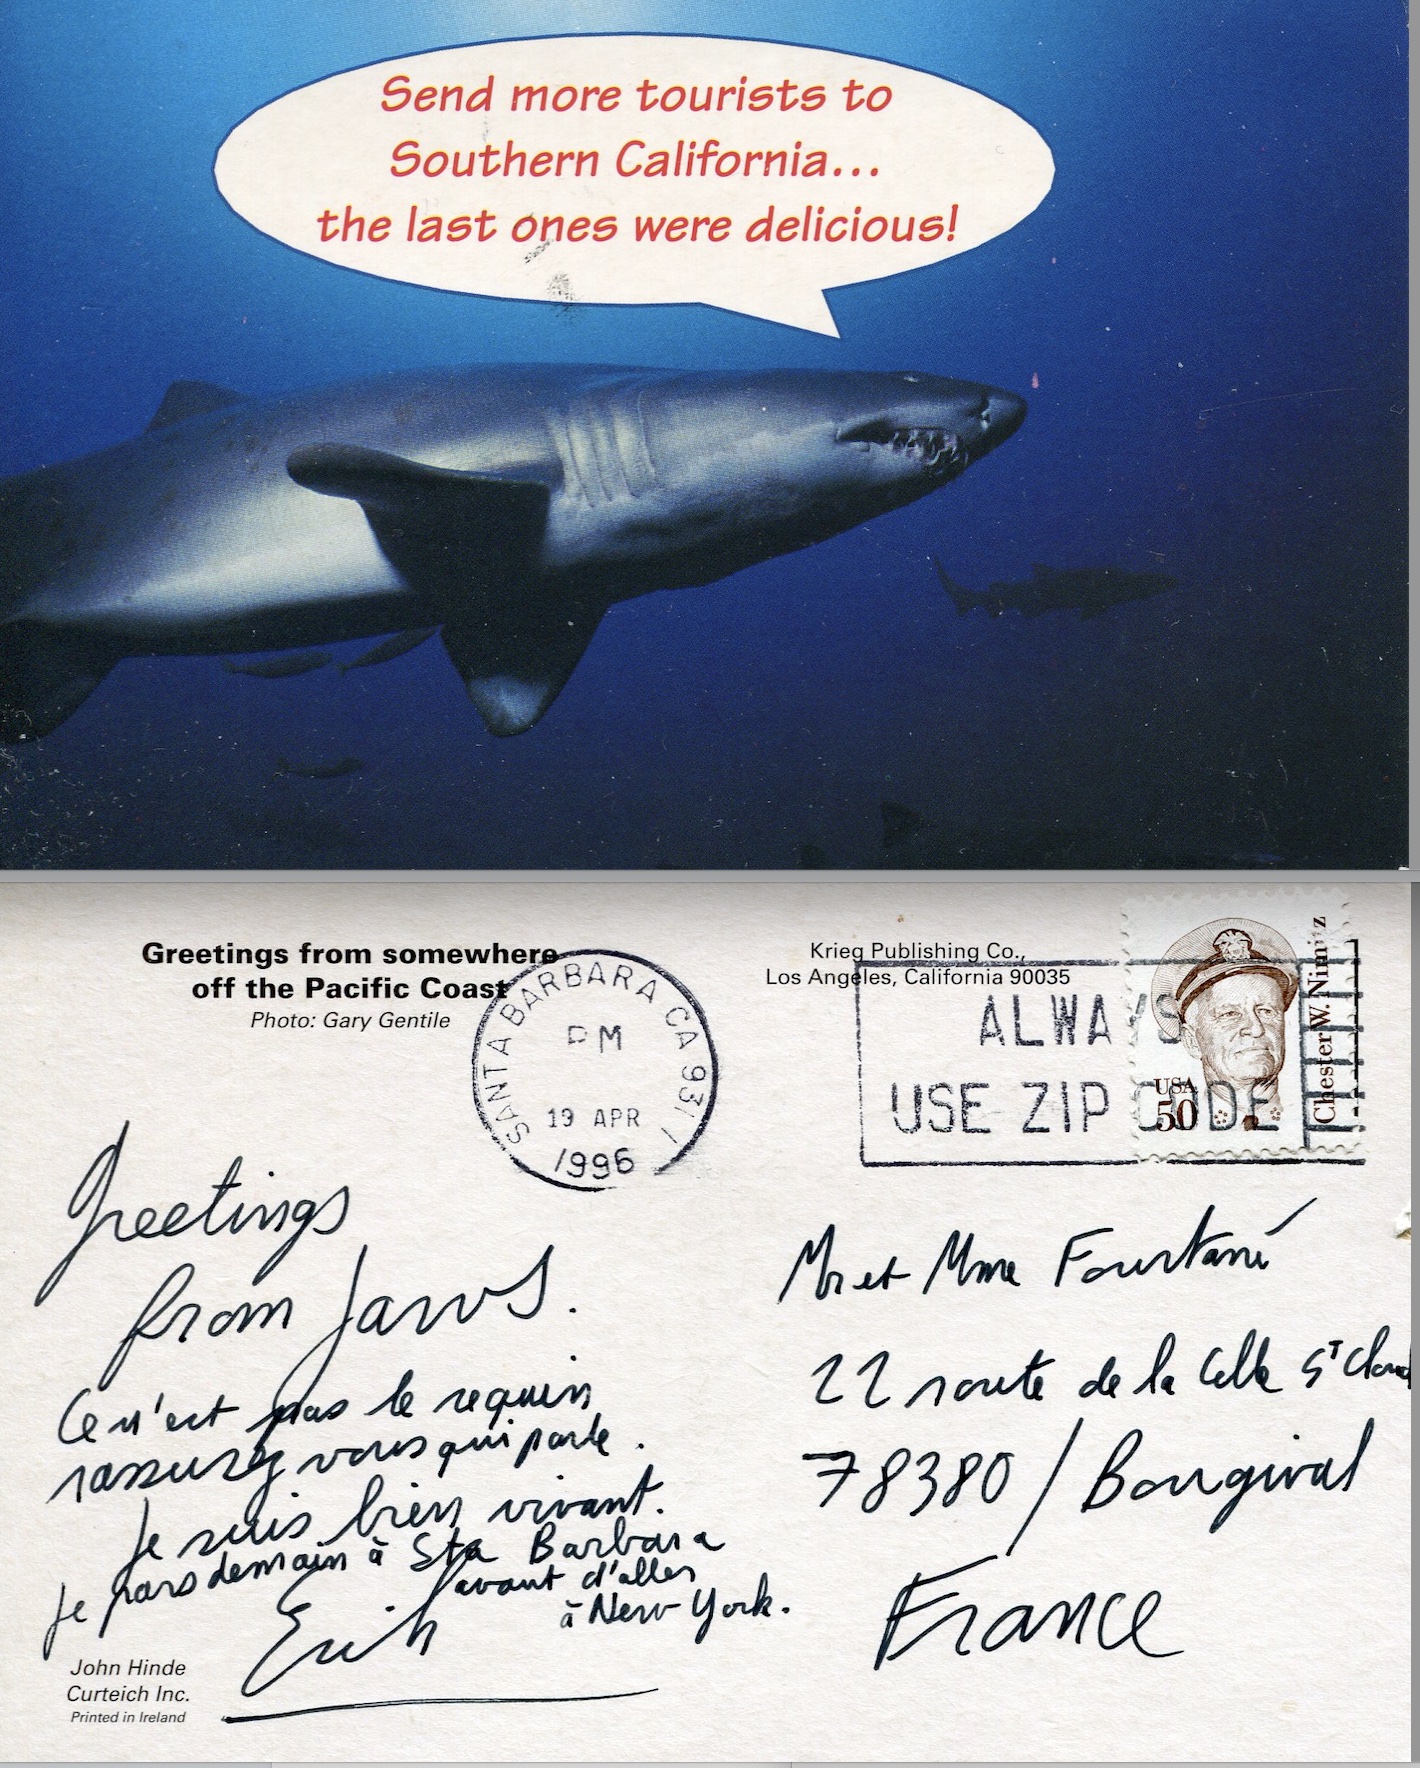 Send more tourists to
Southern California...
the last ones were delicious!
Greetings from somewhere
off the Pacific Coast
Photo: Gary Gentile
Krieg Publishing Co.,
Los Angeles, California 90035
SANTA BARBARA CA 931
PM
19 APR
1996
ALWAYS
USE ZIP CODE
USA
50
Chester W. Nimitz
Greetings
from Jaws.
Ce n'est pas le requin
rassurez vous qui parle.
Je suis bien vivant.
Je pars demain à Sta Barbara
avant d'aller
à New York.
Erich
Mr et Mme Fourtané
22 route de la Celle St Cloud
78380 / Bougival
France
John Hinde
Curteich Inc.
Printed in Ireland